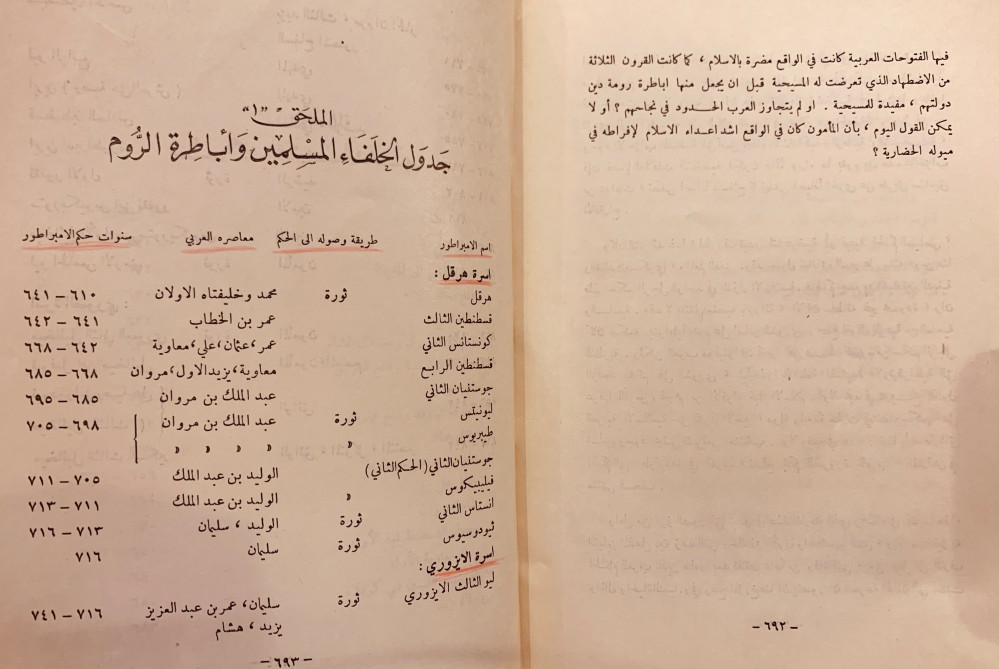 فيها الفتوحات العربية كانت في الواقع مضرة بالاسلام ، كما كانت القرون الثلاثة
من الاضطهاد الذي تعرضت له المسيحية قبل ان يجعل منها اباطرة رومة دين
دولتهم ، مفيدة للمسيحية . او لم يتجاوز العرب الحدود في نجاحهم ؟ أو لا
يمكن القول اليوم ، بأن المأمون كان في الواقع اشد اعداء الاسلام لإفراطه في
ميوله الحضارية ؟
- ٦٩٢ -
الملحق "١"
جدول الخلفاء المسلمين وأباطرة الروم
اسم الامبراطور طريقة وصوله الى الحكم معاصره العربي سنوات حكم الامبراطور
اسرة هرقل :
هرقل ثورة محمد وخليفتاه الاولان ٦١٠ – ٦٤١
قسطنطين الثالث عمر بن الخطاب ٦٤١ – ٦٤٢
كونستانس الثاني عمر، عثمان، علي، معاوية ٦٤٢ – ٦٦٨
قسطنطين الرابع معاوية، يزيد الاول، مروان ٦٦٨ – ٦٨٥
جوستنيان الثاني عبد الملك بن مروان ٦٨٥ – ٦٩٥
ليونيتس ثورة عبد الملك بن مروان ٦٩٨ – ٧٠٥
طيبريوس » » » » »
جوستنيان الثاني (الحكم الثاني) الوليد بن عبد الملك ٧٠٥ – ٧١١
فيليبيكوس » الوليد بن عبد الملك ٧١١ – ٧١٣
انستاس الثاني ثورة الوليد ، سليمان ٧١٣ – ٧١٦
ثيودوسيوس ثورة سليمان ٧١٦
اسرة الايزوري :
ليو الثالث الايزوري ثورة سليمان، عمر بن عبد العزيز ٧١٦ – ٧٤١
يزيد ، هشام
- ٦٩٣ -